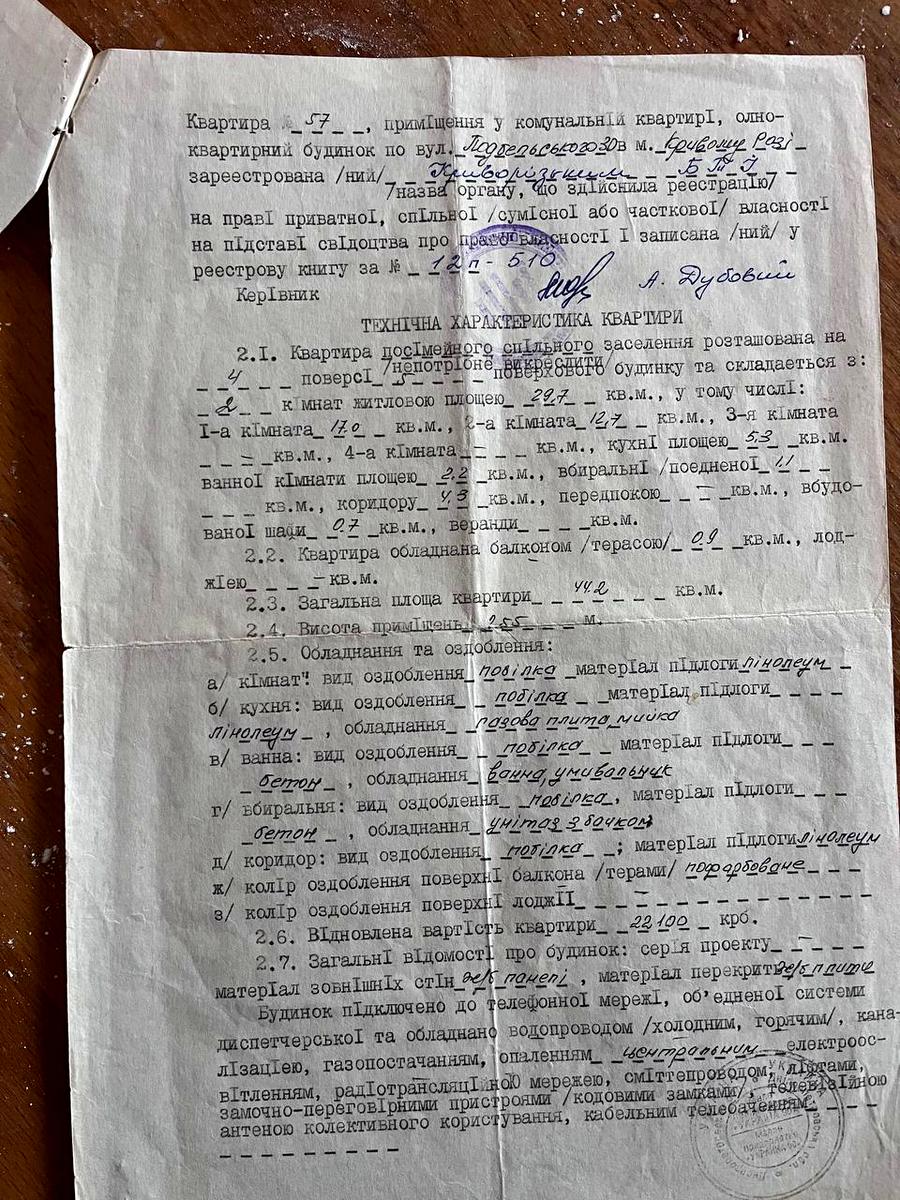 Квартира № 57 , приміщення у комунальній квартирі, одно-
квартирний будинок по вул. Подбельського 30 в м. Кривому Розі
зареєстрована /ний/ Криворізьким Б Т І
/назва органу, що здійснила реєстрацію/
на праві приватної, спільної /сумісної або часткової/ власності
на підставі свідоцтва про право власності і записана /ний/ у
реєстрову книгу за № 12п - 510
Керівник А. Дубовий
ТЕХНІЧНА ХАРАКТЕРИСТИКА КВАРТИРИ
2.І. Квартира посімейного спільного заселення розташована на
/непотрібне викреслити/
4 поверсі 5 поверхового будинку та складається з:
2 кімнат житловою площею 29,7 кв.м., у тому числі:
І-а кімната 17.0 кв.м., 2-а кімната 12,7 кв.м., 3-я кімната
– кв.м., 4-а кімната – кв.м., кухні площею 5.3 кв.м.
ванної кімнати площею 2.2 кв.м., вбиральні /поєдненої 1.1
кв.м., коридору 4,3 кв.м., передпокою – кв.м., вбудо-
ваної шафи 0.7 кв.м., веранди кв.м.
2.2. Квартира обладнана балконом /терасою/ 0.9 кв.м., лод-
жією – кв.м.
2.3. Загальна площа квартири 44.2 кв.м.
2.4. Висота приміщень 2.55 м.
2.5. Обладнання та оздоблення:
а/ кімнат": вид оздоблення побілка матеріал підлоги лінолеум
б/ кухня: вид оздоблення побілка матеріал підлоги
лінолеум , обладнання газова плита, мийка
в/ ванна: вид оздоблення побілка матеріал підлоги
бетон , обладнання ванна, умивальник
г/ вбиральня: вид оздоблення побілка, матеріал підлоги
бетон , обладнання унітаз з бачком
д/ коридор: вид оздоблення побілка ; матеріал підлоги лінолеум
ж/ колір оздоблення поверхні балкона /терами/ пофарбоване
з/ колір оздоблення поверхні лоджії –
2.6. Відновлена вартість квартири 22100 крб.
2.7. Загальні відомості про будинок: серія проекту –
матеріал зовнішніх стін ж/б панелі , матеріал перекрить ж/б плити
Будинок підключено до телефонної мережі, об'єдненої системи
диспетчерської та обладнано водопроводом /холодним, горячим/, кана-
лізацією, газопостачанням, опаленням центральним електроос-
вітленням, радіотрансляційною мережею, сміттепроводом, ліфтами,
замочно-переговірними пристроями /кодовими замками/, телевізійною
антеною колективного користування, кабельним телебаченням